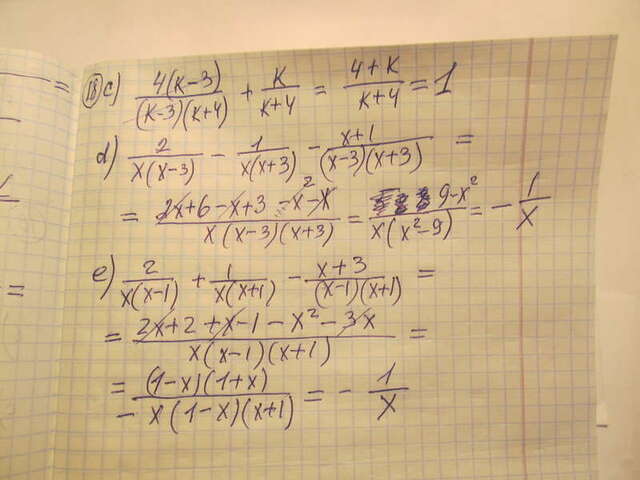 18 c) 4(k-3)/((k-3)(k+4)) + k/(k+4) = (4+k)/(k+4) = 1
d) 2/(x(x-3)) - 1/(x(x+3)) - (x+1)/((x-3)(x+3)) =
= (2x+6-x+3-x²-x)/(x(x-3)(x+3)) = (9-x²)/(x(x²-9)) = -1/x
e) 2/(x(x-1)) + 1/(x(x+1)) - (x+3)/((x-1)(x+1)) =
= (2x+2+x-1-x²-3x)/(x(x-1)(x+1)) =
= (1-x)(1+x)/(-x(1-x)(x+1)) = -1/x